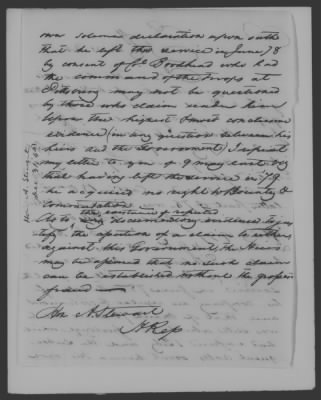 own solemn declaration upon oath
that he left the service in June 78
by consent of Col Brodhead who had
the command of the troops at
Pittsburg may not be questioned
by those who claim under him
upon the highest & most conclusive
evidence (in any question between his
heirs and the Government) I repeat
my letter to you of 9 may last
that having left the service in '79
he acquired no right to Bounty &
commutation
As to the existence of
any documentary evidence to
the assertion of a claim to either
against this Government, the Heirs
may be assured that no such claim
can be established without the grossest
fraud
Hon A. Stewart
A Rep
Hon A. Stewart
Dec 31